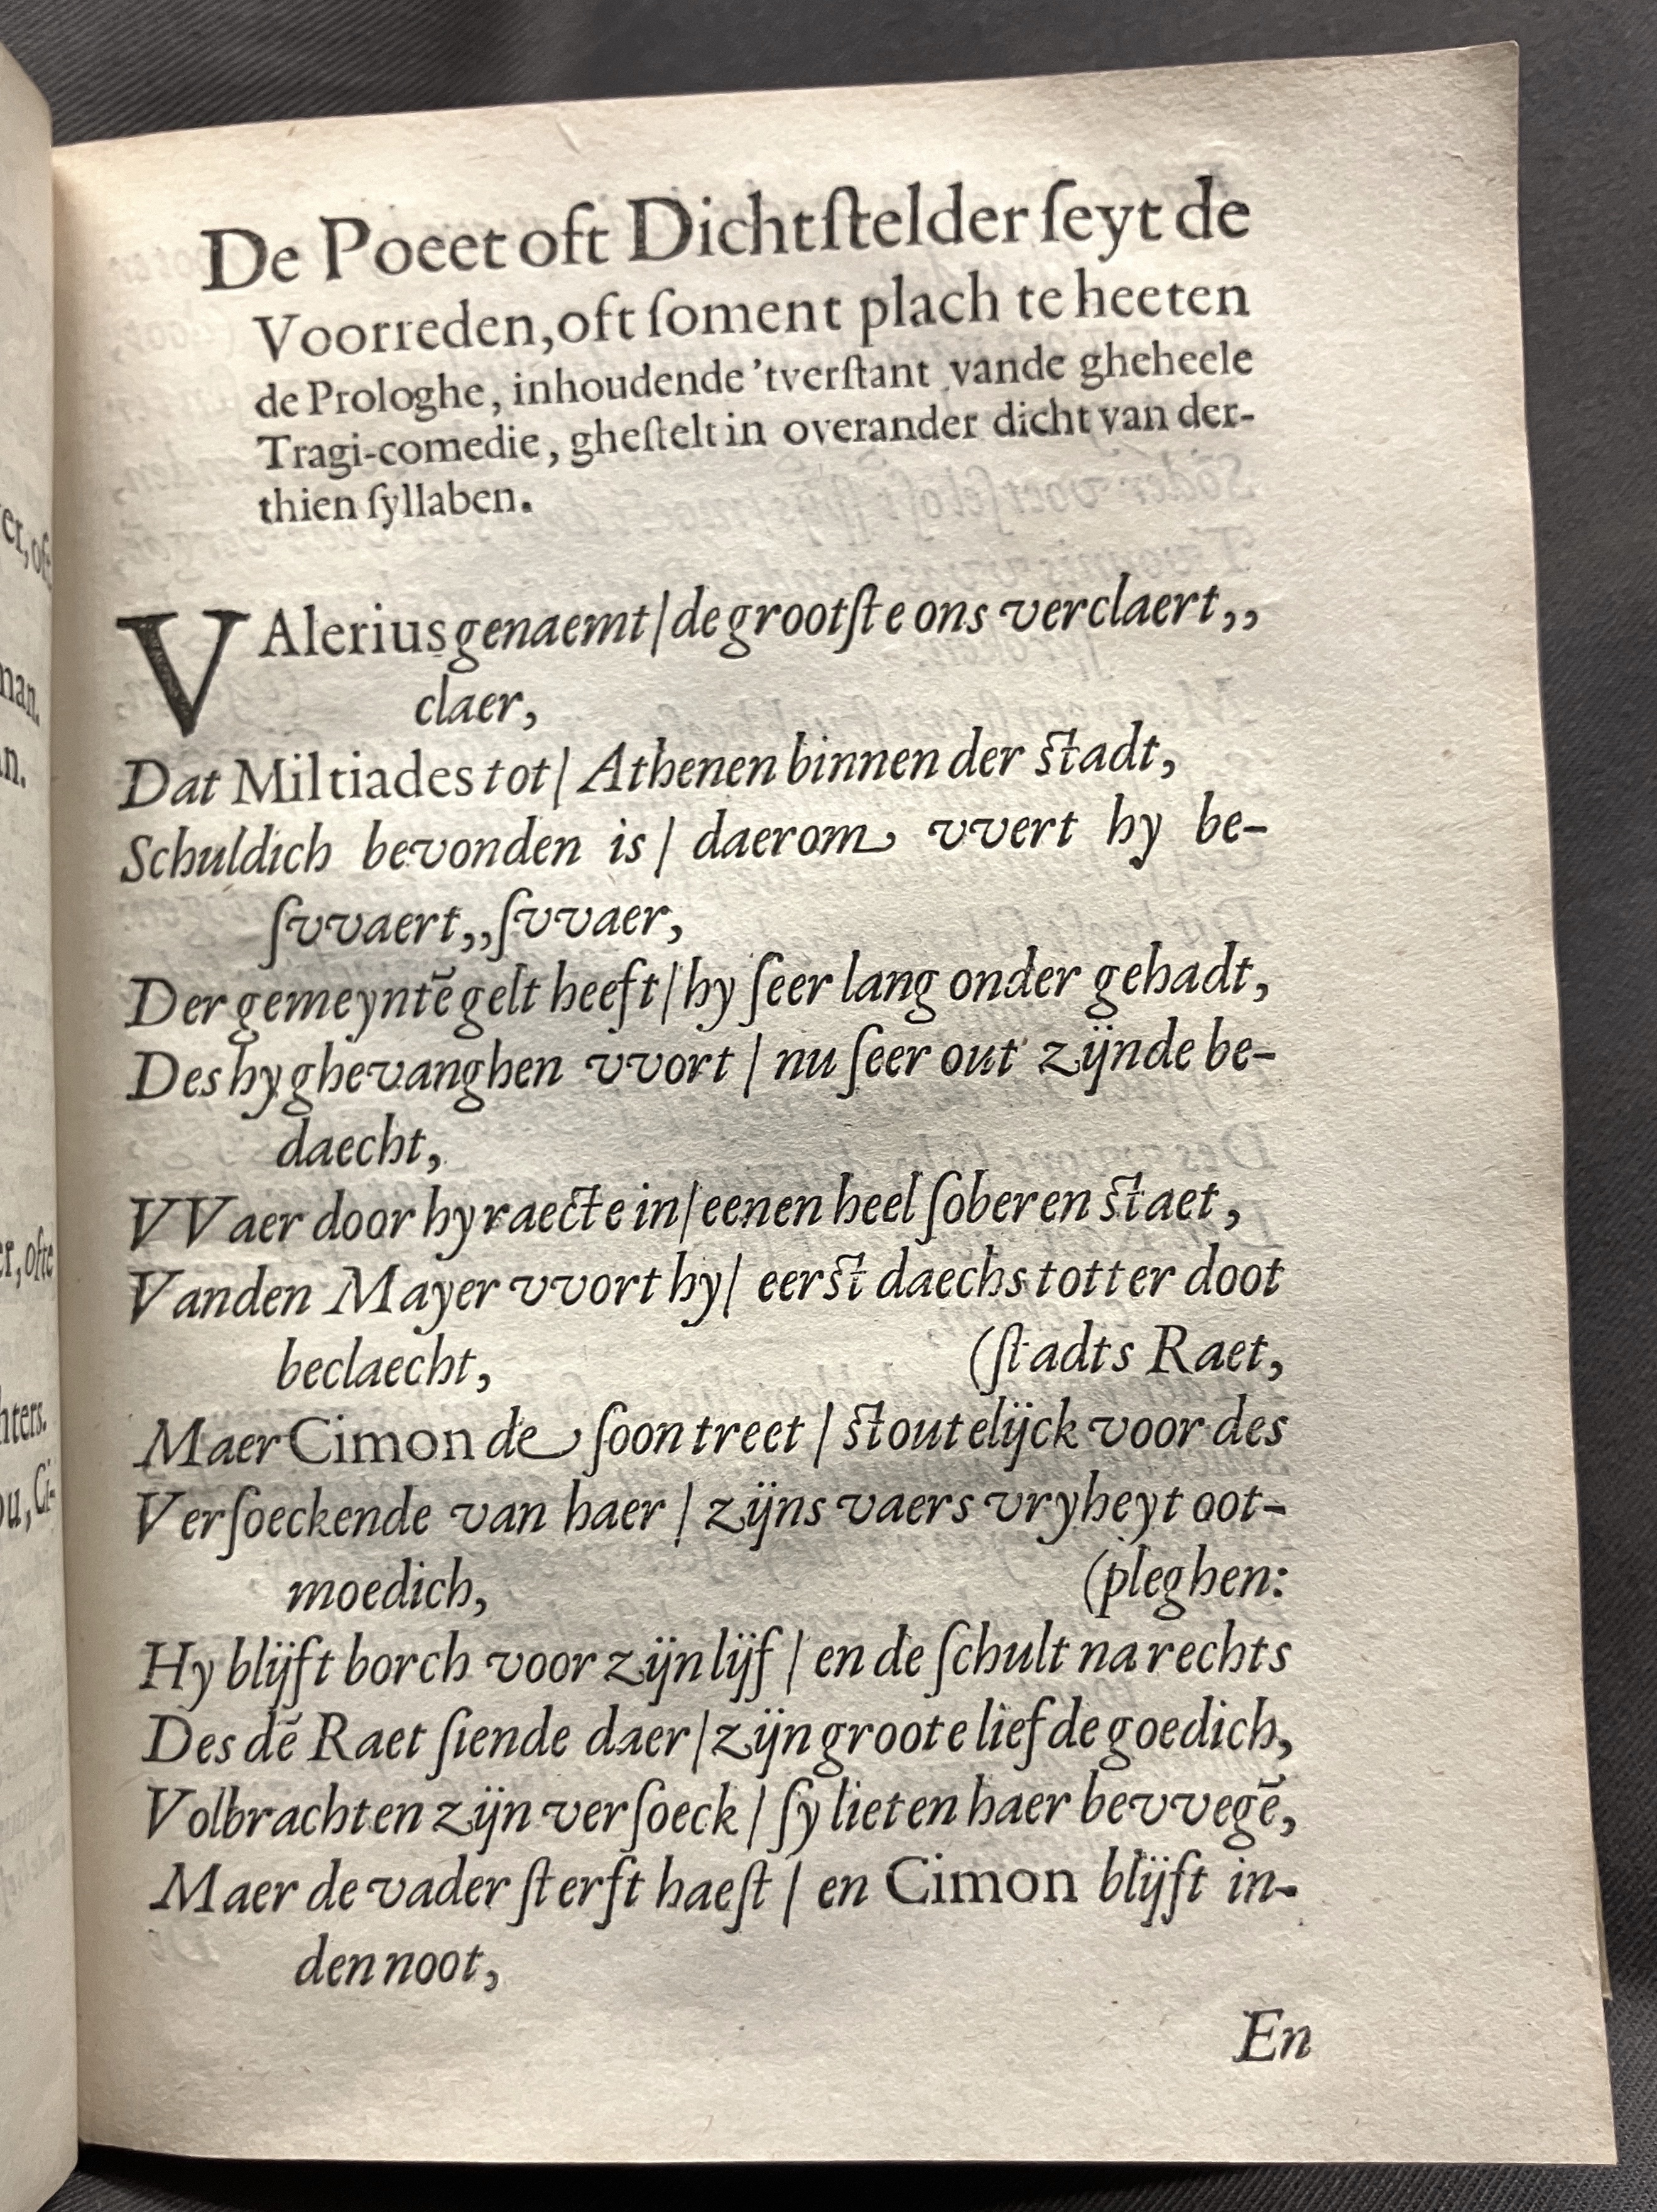 De Poeet oft Dichtſtelder ſeyt de
Voorreden, oft ſoment plach te heeten
de Prologhe, inhoudende 'tverſtant vande gheheele
Tragi-comedie, gheſtelt in overander dicht van der-
thien ſyllaben.
VAlerius genaemt / de grootſte ons verclaert,,
claer,
Dat Miltiades tot / Athenen binnen der ſtadt,
Schuldich bevonden is / daerom vvert hy be-
ſvvaert,, ſvvaer,
Der gemeyntē gelt heeft / hy ſeer lang onder gehadt,
Des hy ghevanghen vvort / nu ſeer out zijnde be-
daecht,
VVaer door hy raecte in / eenen heel ſoberen ſtaet,
Vanden Mayer vvort hy / eerſt daechs totter doot
beclaecht, (ſtadts Raet,
Maer Cimon de ſoon treet / ſtoutelijck voor des
Verſoeckende van haer / zijns vaers vryheyt oot-
moedich, (pleghen:
Hy blijft borch voor zijn lijf / en de ſchult na rechts
Des dē Raet ſiende daer / zijn groote liefde goedich,
Volbrachten zijn verſoeck / ſy lieten haer bevvegē,
Maer de vader ſterft haeſt / en Cimon blijft in-
den noot,
En
er, oft
man.
n.
er, ofte
hters.
ou, Ci-